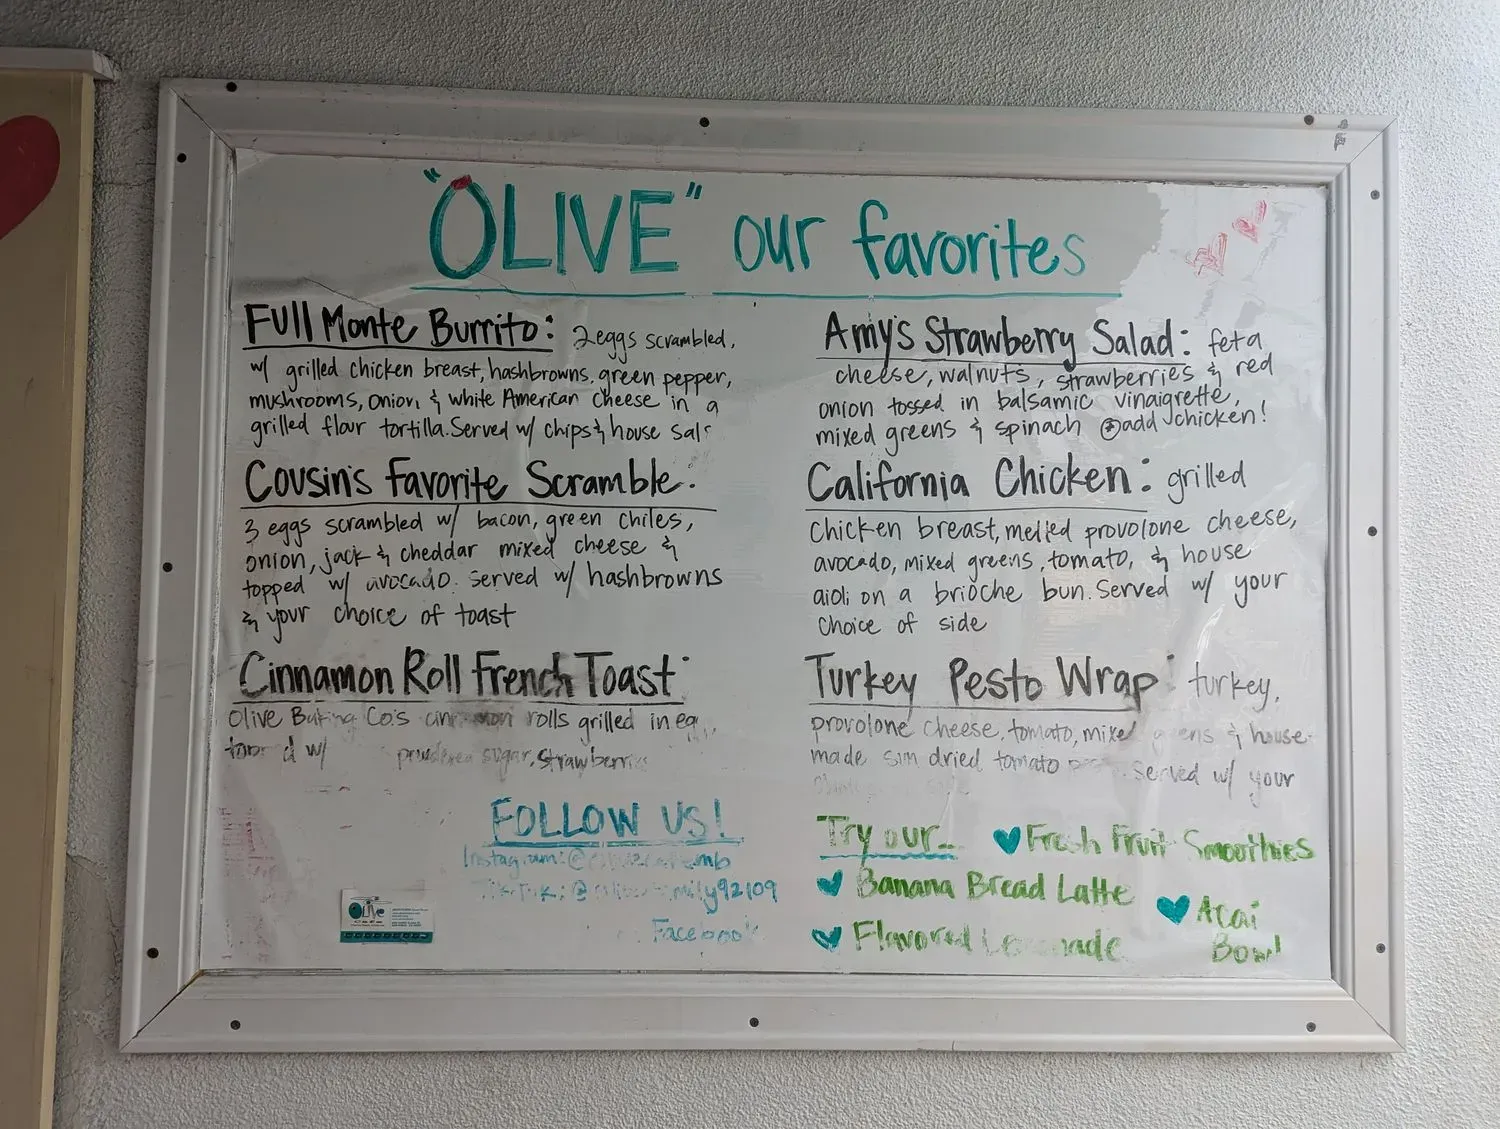 "OLIVE" our favorites
Full Monte Burrito: 2 eggs scrambled,
w/ grilled chicken breast, hashbrowns, green pepper,
mushrooms, onion, & white American cheese in a
grilled flour tortilla. Served w/ chips & house
Cousin's Favorite Scramble:
3 eggs scrambled w/ bacon, green chiles,
onion, jack & cheddar mixed cheese &
topped w/ avocado. served w/ hashbrowns
& your choice of toast
Cinnamon Roll French Toast:
Olive Baking Co's cinnamon rolls grilled in
w/ powdered sugar, strawberries
FOLLOW US!
Instagram:
TikTok:
Facebook
Amy's Strawberry Salad: feta
cheese, walnuts, strawberries & red
onion tossed in balsamic vinaigrette,
mixed greens & spinach add chicken!
California Chicken: grilled
chicken breast, melted provolone cheese,
avocado, mixed greens, tomato, & house
aioli on a brioche bun. Served w/ your
choice of side
Turkey Pesto Wrap: turkey,
provolone cheese, tomato, mixed greens & house-
made sun dried tomato served w/ your
Try our...
Fresh Fruit Smoothies
Banana Bread Latte
Acai
Bowl
Flavored Lemonade
Olive